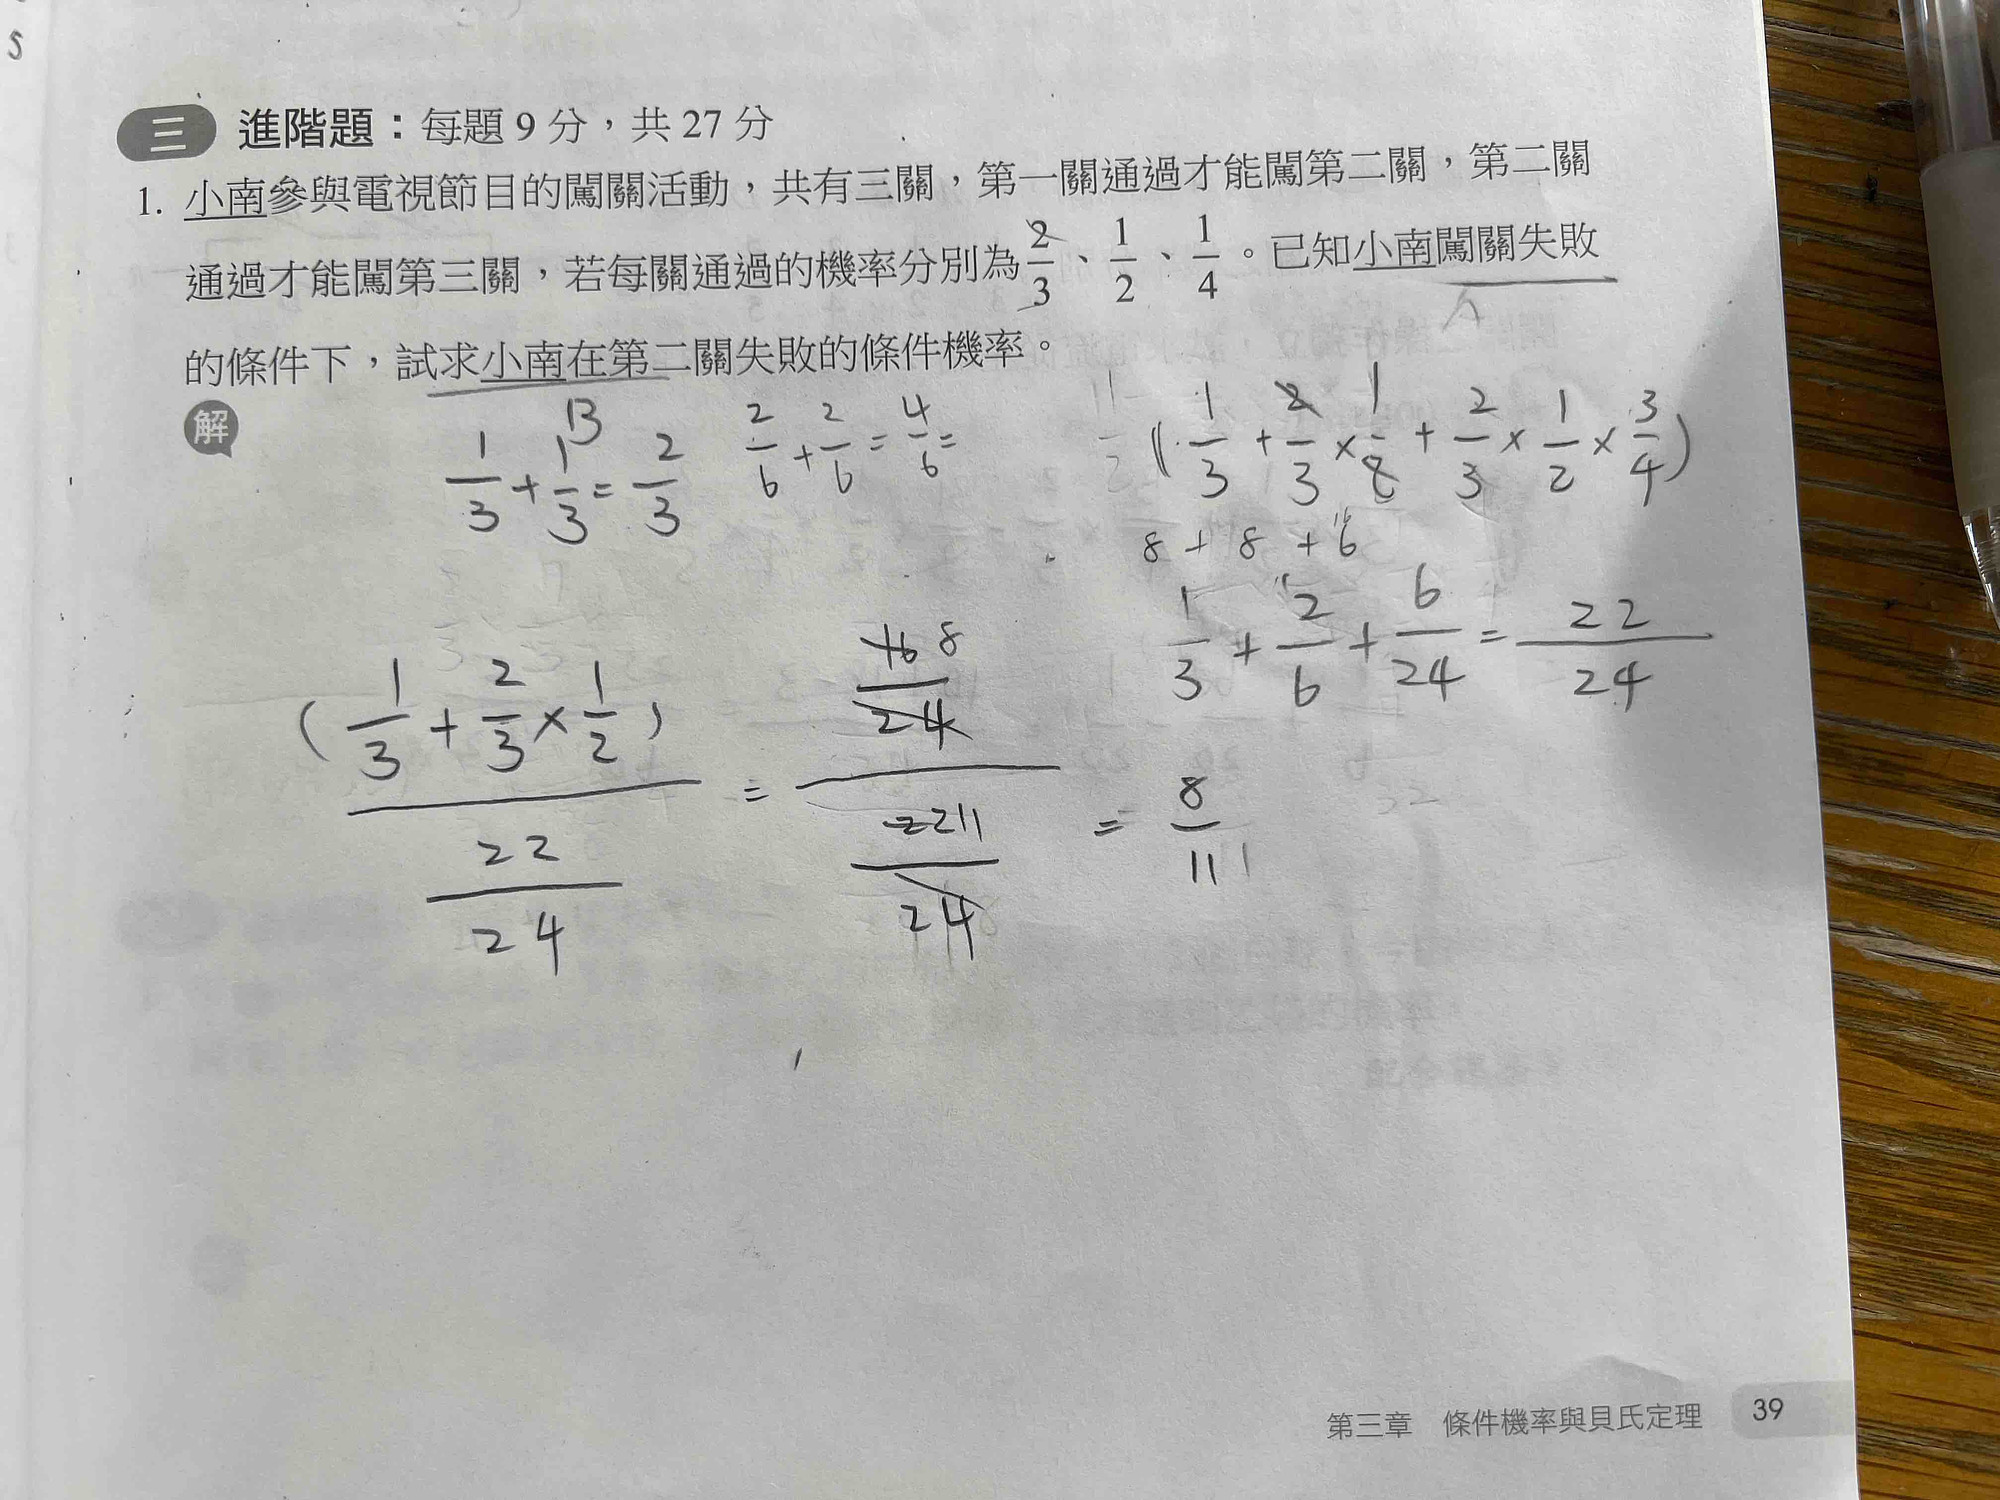 5
三 進階題：每題 9 分，共 27 分
1. 小南參與電視節目的闖關活動，共有三關，第一關通過才能闖第二關，第二關
通過才能闖第三關，若每關通過的機率分別為 2/3、1/2、1/4。已知小南闖關失敗
A
的條件下，試求小南在第二關失敗的條件機率。
解
B
1/3 + 1/3 = 2/3
2/6 + 2/6 = 4/6 =
(1/3 + 2/3 × 1/2 + 2/3 × 1/2 × 3/4)
8 + 8 + 6
1/3 + 2/6 + 6/24 = 22/24
(1/3 + 2/3 × 1/2) / (22/24) = (16 8/24) / (22 11/24) = 8/11
第三章 條件機率與貝氏定理 39